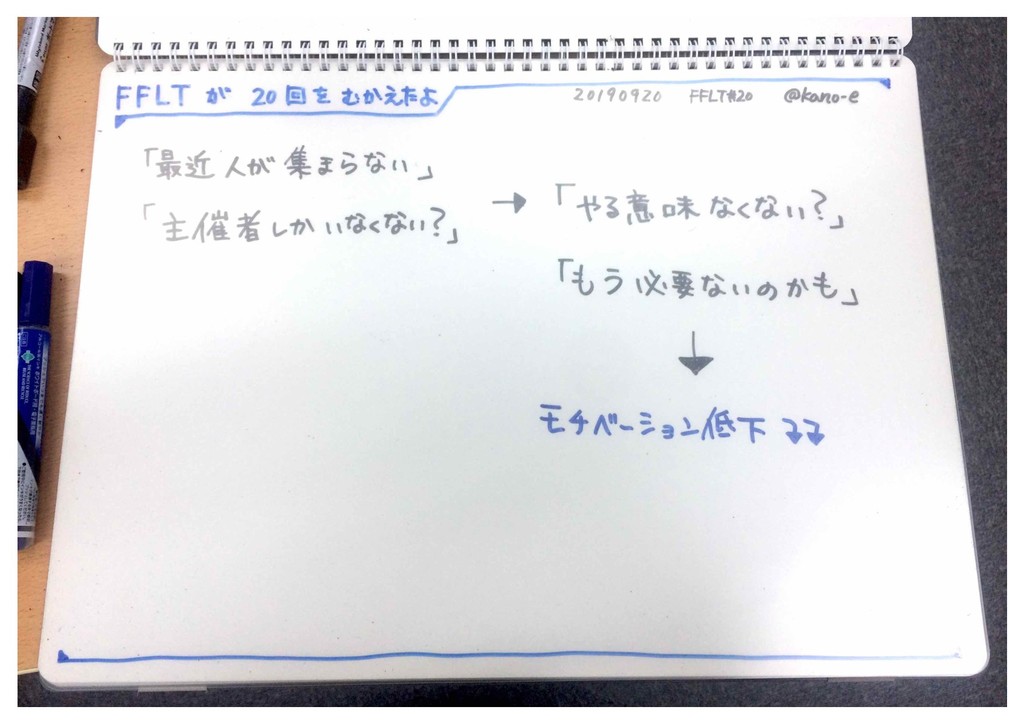 FFLT が 20回をむかえたよ
20190920 FFLT#20 @kano-e
「最近 人が 集まらない」
「主催者しか いなくない?」
→「やる意味 なくない?」
「もう 必要ないのかも」
↓
モチベーション低下 ⤵⤵